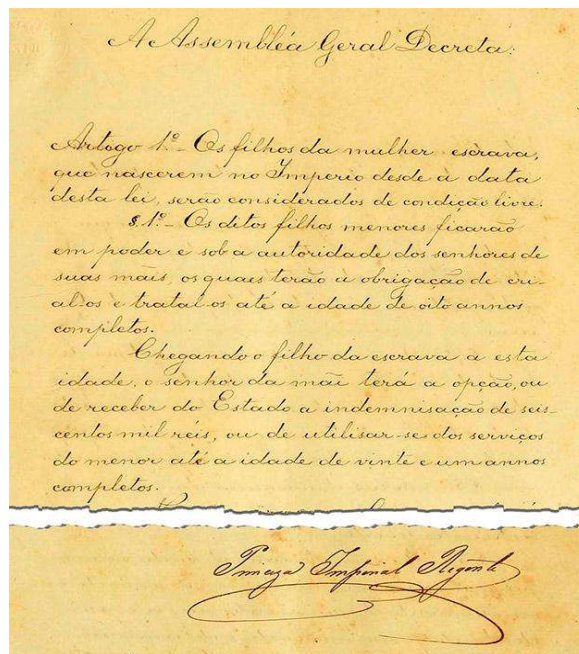 A Assembléa Geral Decreta:
Artogo 1º - Os filhos da mulher escrava,
que nascerem no Imperio desde a data
desta lei, serao considerados de condição livre.
§ 1º - Os ditos filhos menores ficarão
em poder e sob a autoridade dos senhores de
suas mãis, os quaes terão a obrigação de cri-
al-os e tratal-os até a idade de oito annos
completos.
Chegando o filho da escrava a esta
idade, o senhor da mãi terá a opção, ou
de receber do Estado a indemnisação de seis
centos mil réis, ou de utilisar-se dos serviços
do menor até a idade de vinte e um annos
completos.
Princeza Imperial Regente